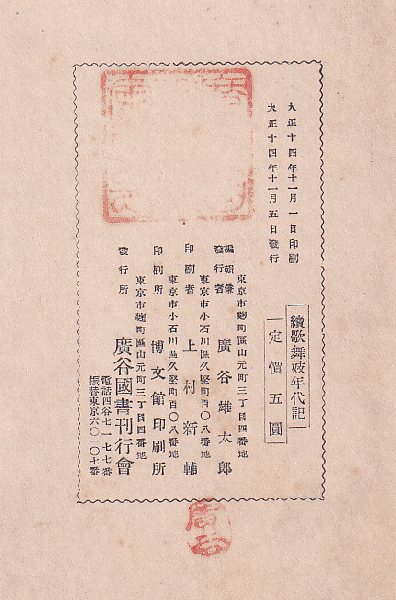 大正十四年十一月一日印刷
大正十四年十一月五日發行
續歌舞妓年代記
定價五圓
東京市麹町區山元町三丁目四番地
編輯兼
發行者
廣谷雄太郎
東京市小石川區久堅町百〇八番地
印刷者
上村新輔
東京市小石川區久堅町百〇八番地
印刷所
博文館印刷所
東京市麹町區山元町三丁目四番地
發行所
廣谷國書刊行會
電話四谷七一七七番
振替東京六〇一〇七番